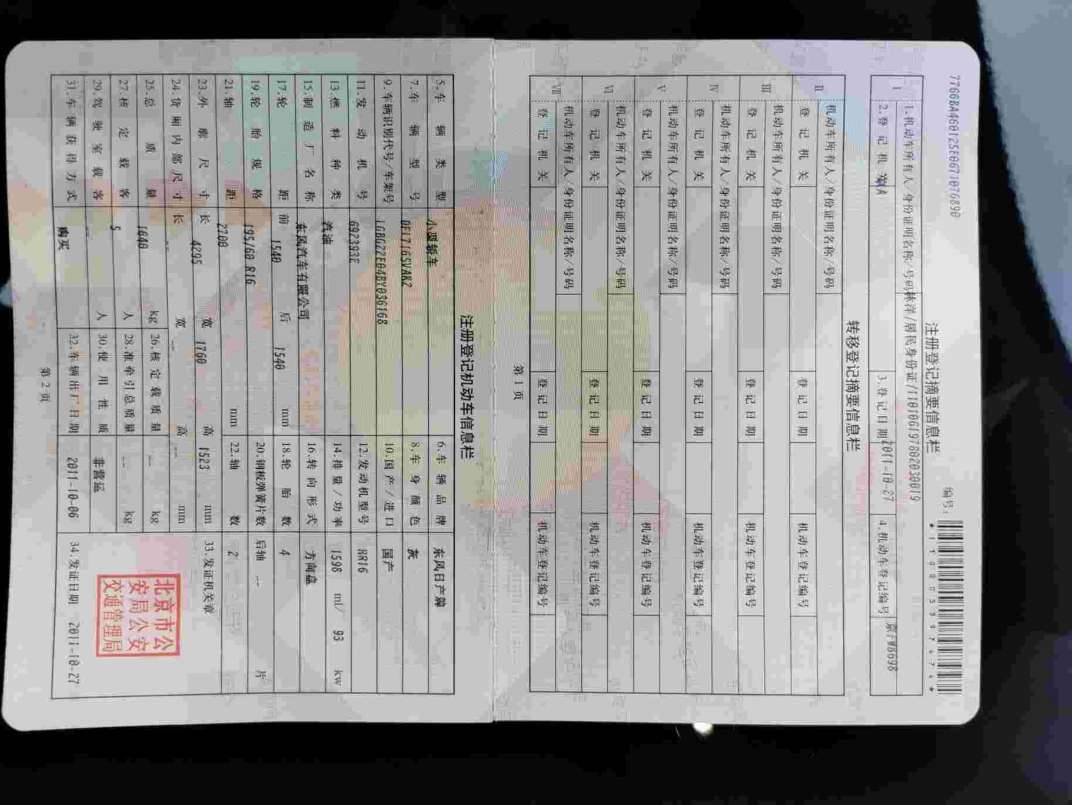 7766BA460125E0671076890
注册登记摘要信息栏
编号:
I
1.机动车所有人/身份证明名称/号码 林洋/居民身份证/110106197802030019
2.登记机关 京A 3.登记日期 2011-10-27 4.机动车登记编号 京FW8698
转移登记摘要信息栏
II 机动车所有人/身份证明名称/号码
登记机关 登记日期 机动车登记编号
III 机动车所有人/身份证明名称/号码
登记机关 登记日期 机动车登记编号
IV 机动车所有人/身份证明名称/号码
登记机关 登记日期 机动车登记编号
V 机动车所有人/身份证明名称/号码
登记机关 登记日期 机动车登记编号
VI 机动车所有人/身份证明名称/号码
登记机关 登记日期 机动车登记编号
VII 机动车所有人/身份证明名称/号码
登记机关 登记日期 机动车登记编号
第1页
注册登记机动车信息栏
5.车辆类型 小型轿车 6.车辆品牌 东风日产牌
7.车辆型号 DFL7165VAK2 8.车身颜色 灰
9.车辆识别代号/车架号 LGBG22E04BY036168 10.国产/进口 国产
11.发动机号 692393E 12.发动机型号 HR16
13.燃料种类 汽油 14.排量/功率 1598 ml/ 93 kw
15.制造厂名称 东风汽车有限公司 16.转向形式 方向盘
17.轮距 前 1540 后 1540 mm 18.轮胎数 4
19.轮胎规格 195/60 R16 20.钢板弹簧片数 后轴 -- 片
21.轴距 2700 mm 22.轴数 2
23.外廓尺寸 长 4295 宽 1760 高 1523 mm 33.发证机关章
24.货厢内部尺寸 长 -- 宽 -- 高 -- mm
25.总质量 1640 kg 26.核定载质量 -- kg
27.核定载客 5 人 28.准牵引总质量 -- kg
29.驾驶室载客 -- 人 30.使用性质 非营运
31.车辆获得方式 购买 32.车辆出厂日期 2011-10-06 34.发证日期 2011-10-27
北京市公
安局公安
交通管理局
第2页